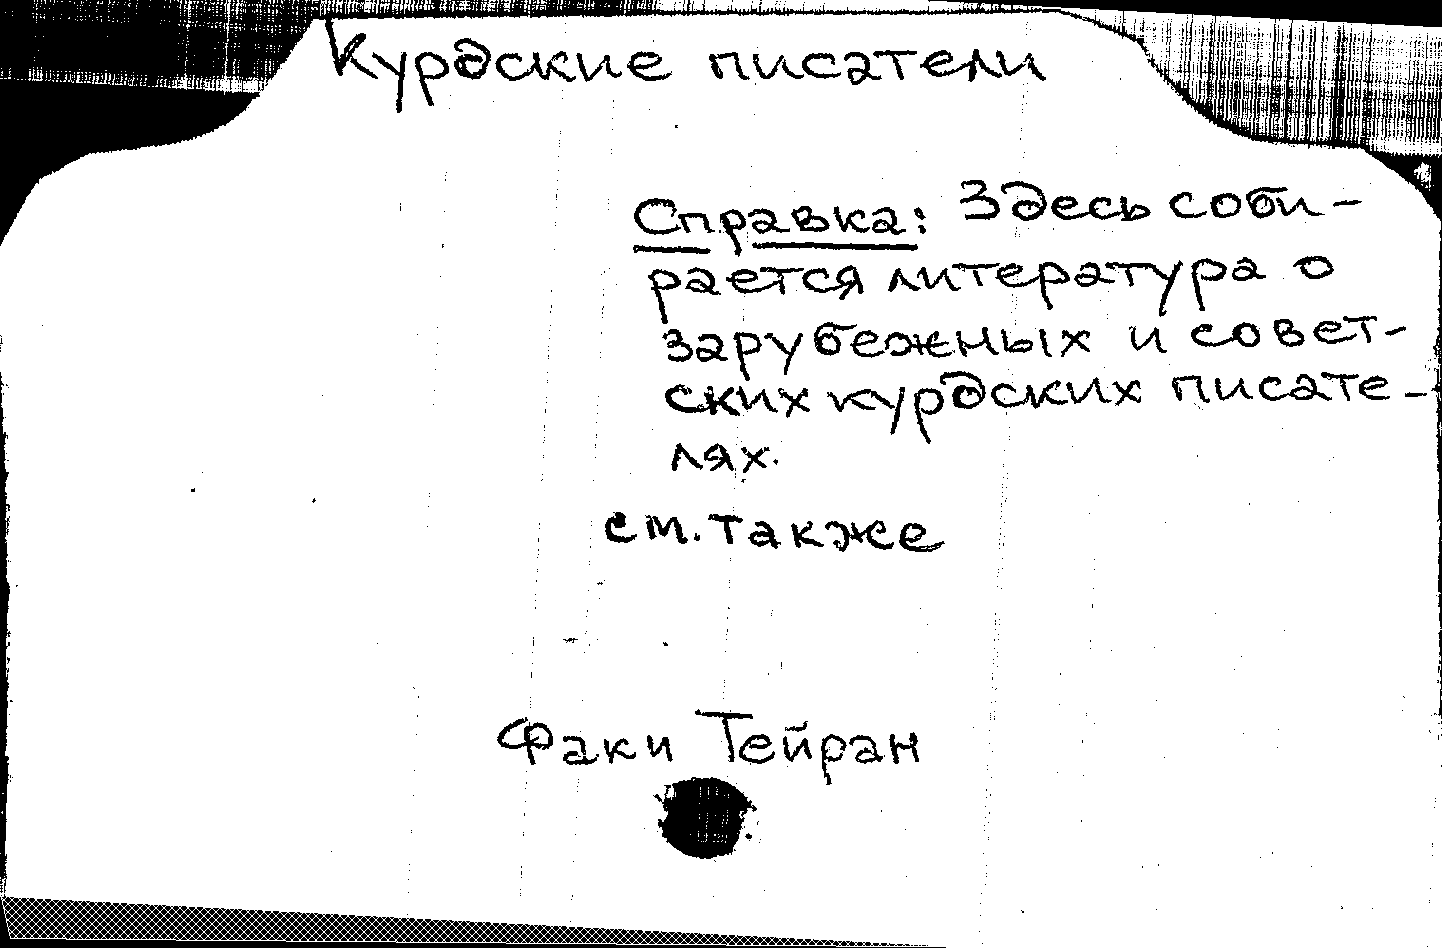 Курдские писатели
Справка: Здесь соби-
рается литература о
зарубежных и совет-
ских курдских писате-
лях.
см. также
Факи Тейран